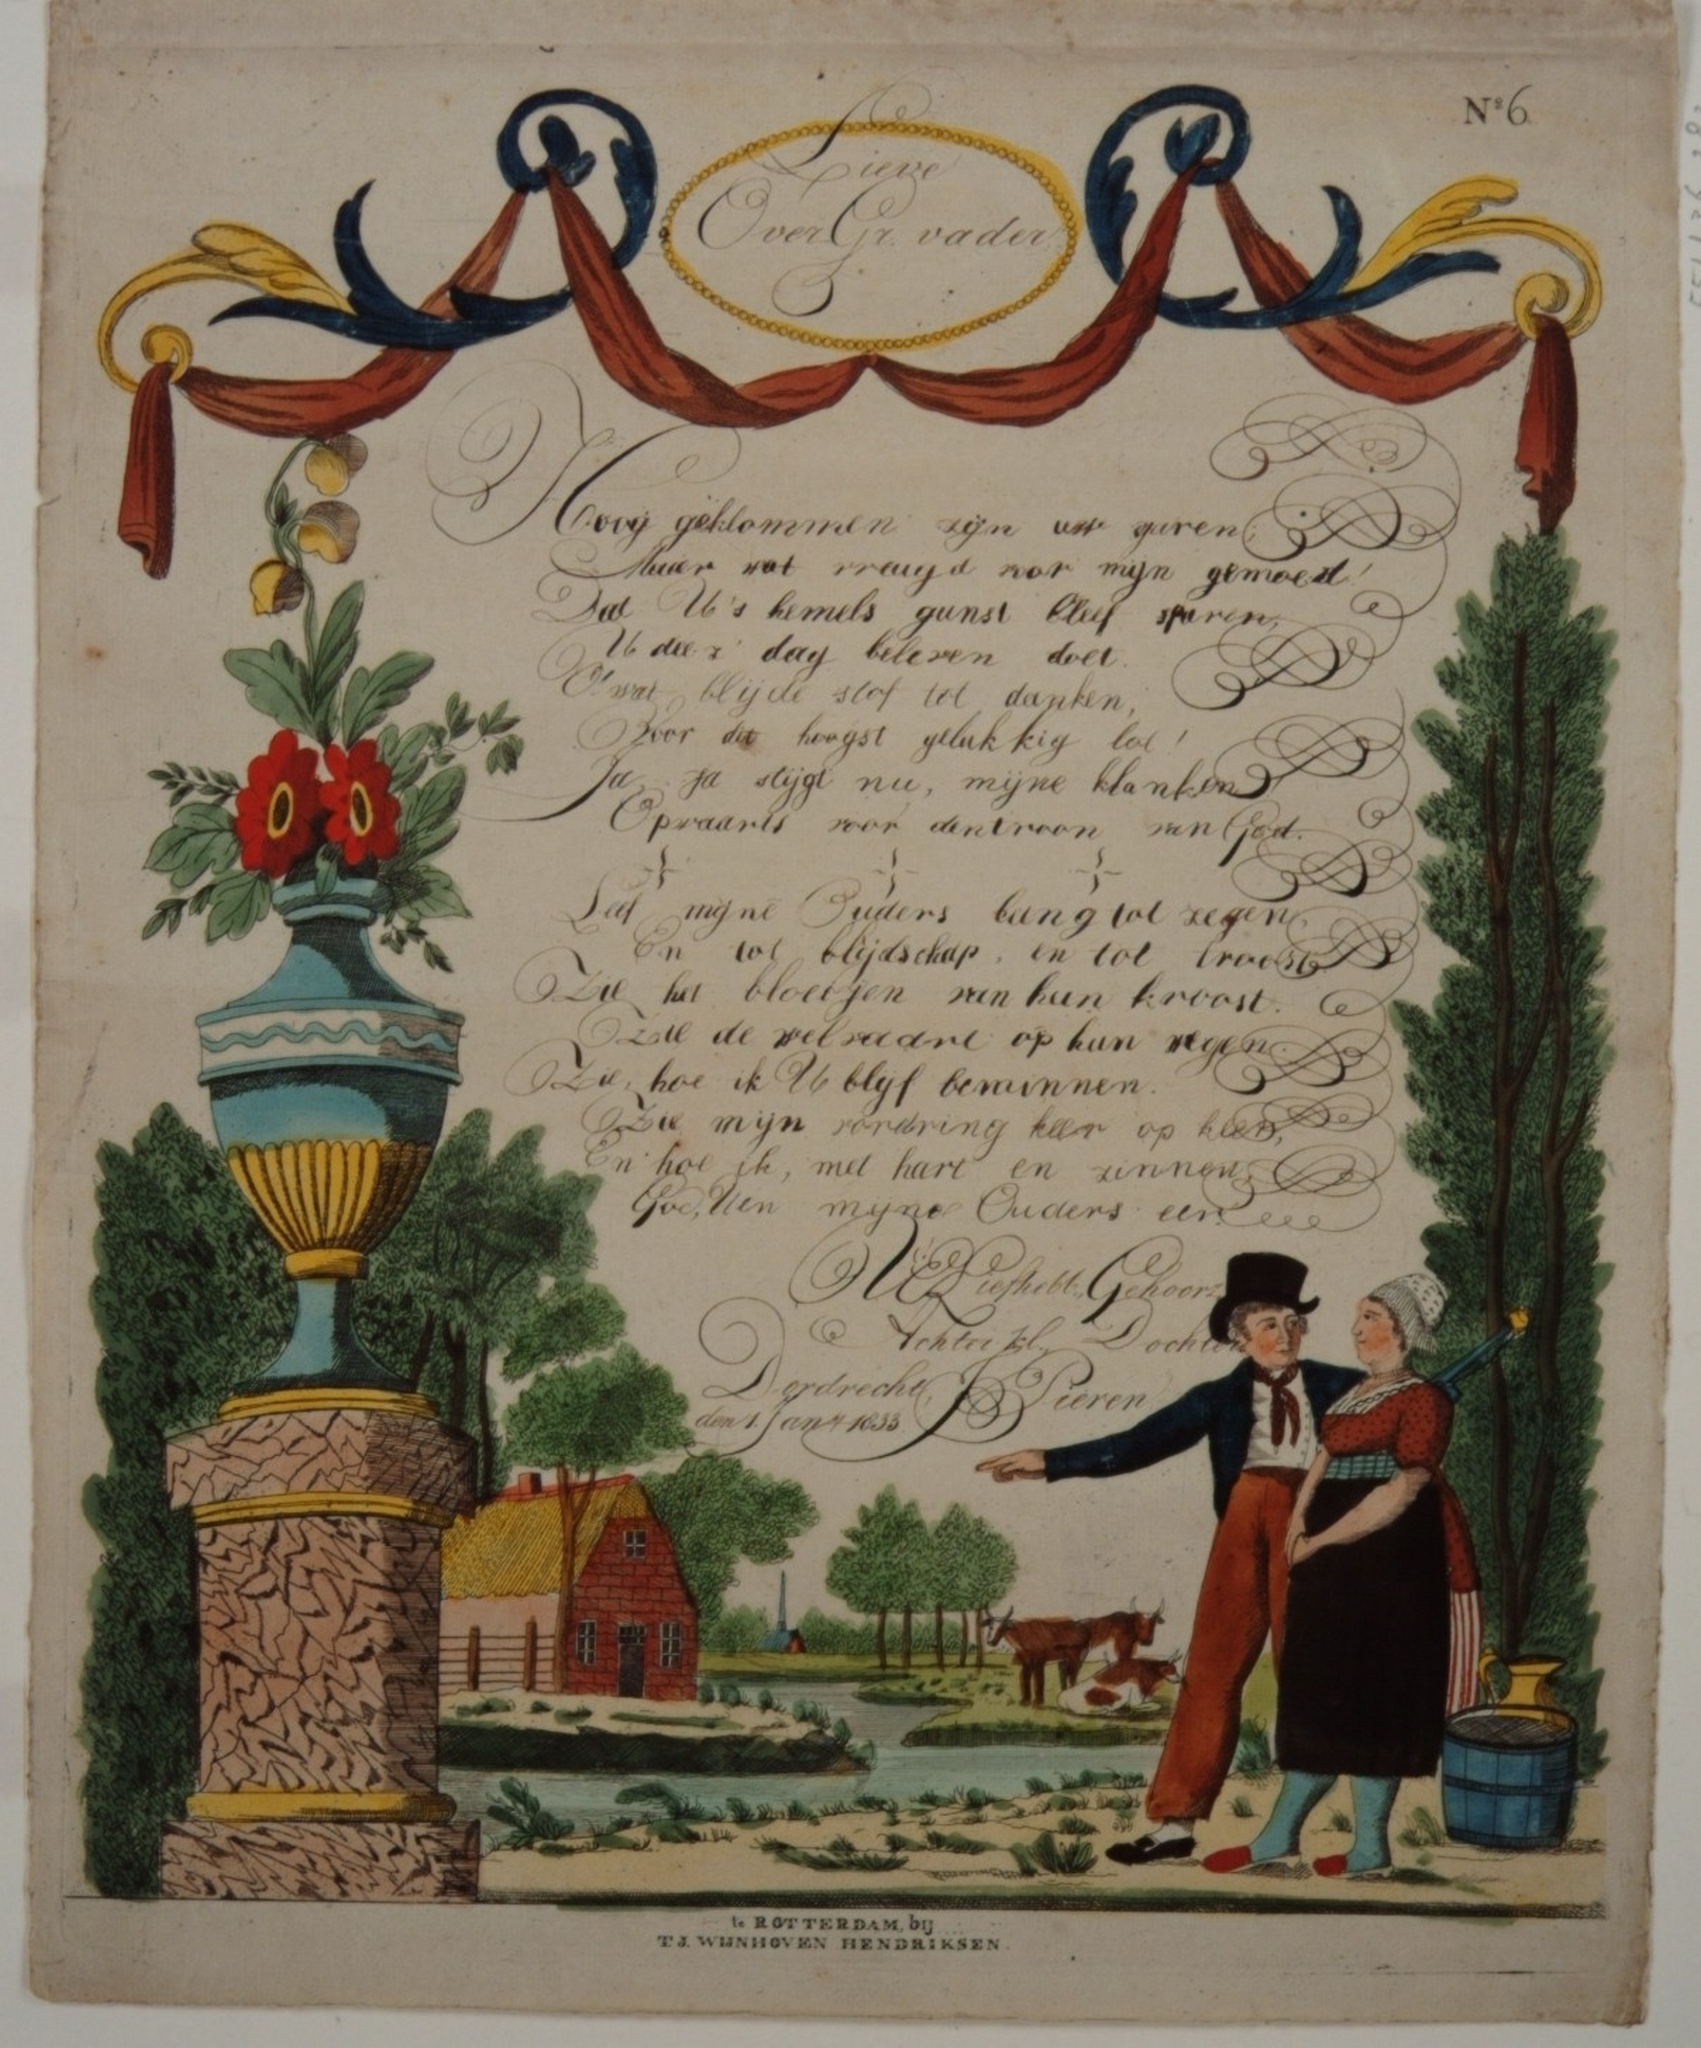 Nº 6
Lieve
Over Gr. vader
Hoog geklommen zijn uw jaren;
Maar wat vreugd voor mijn gemoed!
Dat U's hemels gunst bleef sparen,
U dee z' dag beleven doet.
O! wat blijde stof tot danken,
Voor dit hoogst gelukkig lot!
Ja, ja stijgt nu, mijne klanken
Opwaarts voor den troon van God.
Leef mijne Ouders lang tot zegen
En tot blijdschap, en tot troost
Zie het bloeijen van hun kroost.
Zie de welvaart op hun wegen.
Zie, hoe ik U blijf beminnen.
Zie mijn vordring keer op keer,
En hoe ik, met hart en zinnen,
God, U en mijne Ouders eer.
U Liefhebb. Gehoorz
Achter kl. Dochter
Dordrecht, Pieren
den 1. Jany 1833
te ROTTERDAM, bij
T. J. WIJNHOVEN HENDRIKSEN.